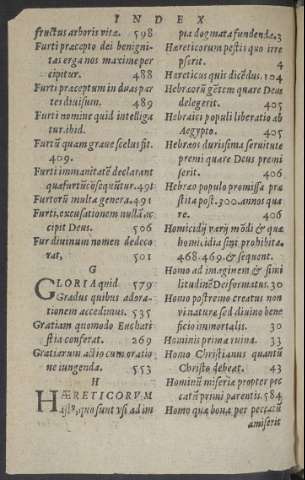 INDEX
fructus arboris vitæ. 598
Furti præcepto dei benigni-
tas erga nos maxime per
cipitur. 488
Furti præceptum in duas par
tes divisum. 489
Furti nomine quid intelliga
tur. ibid.
Furtũ quam grave scelus sit.
409.
Furti immanitatẽ declarant
quæ furtũ cõsequũtur. 491
Furtorũ multa genera. 491
Furti, excusationem nullã ac
cipit Deus. 506
Fur divinum nomen dedeco
rat, 501
G
GLORIA quid 579
Gradus quibus adora-
tionem accedimus. 535
Gratiam quomodo Euchari
stia conferat. 269
Gratiarum actio cum oratio
ne iungenda. 553
H
HÆRETICORVM
astus, quo sunt usi ad im
pia dogmata fundenda. 3
Hæreticorum pestis quo irre
pserit. 4
Hæreticus quis dicẽdus. 104
Hebræorũ gẽtem quare Deus
delegerit. 405
Hebraici populi liberatio ab
Aegypto. 405
Hebræos durissima servitute
premi quare Deus premi
serit. 406
Hebræo populo promissa præ
stita post. 300. annos qua
re. 406
Homicidij varij mõdi & quæ
homicidia sint prohibita.
468. 469. & sequent.
Homo ad imaginem & simi
litudinẽ Dei formatus. 30
Homo postremo creatus non
vi naturæ sed divino bene
ficio immortalis. 30
Hominis prima ruina. 33
Homo Christianus quantũ
Christo debeat. 43
Hominũ miseriæ propter pec
catũ primi parentis. 584
Homo quæ bona per peccatũ
amiserit